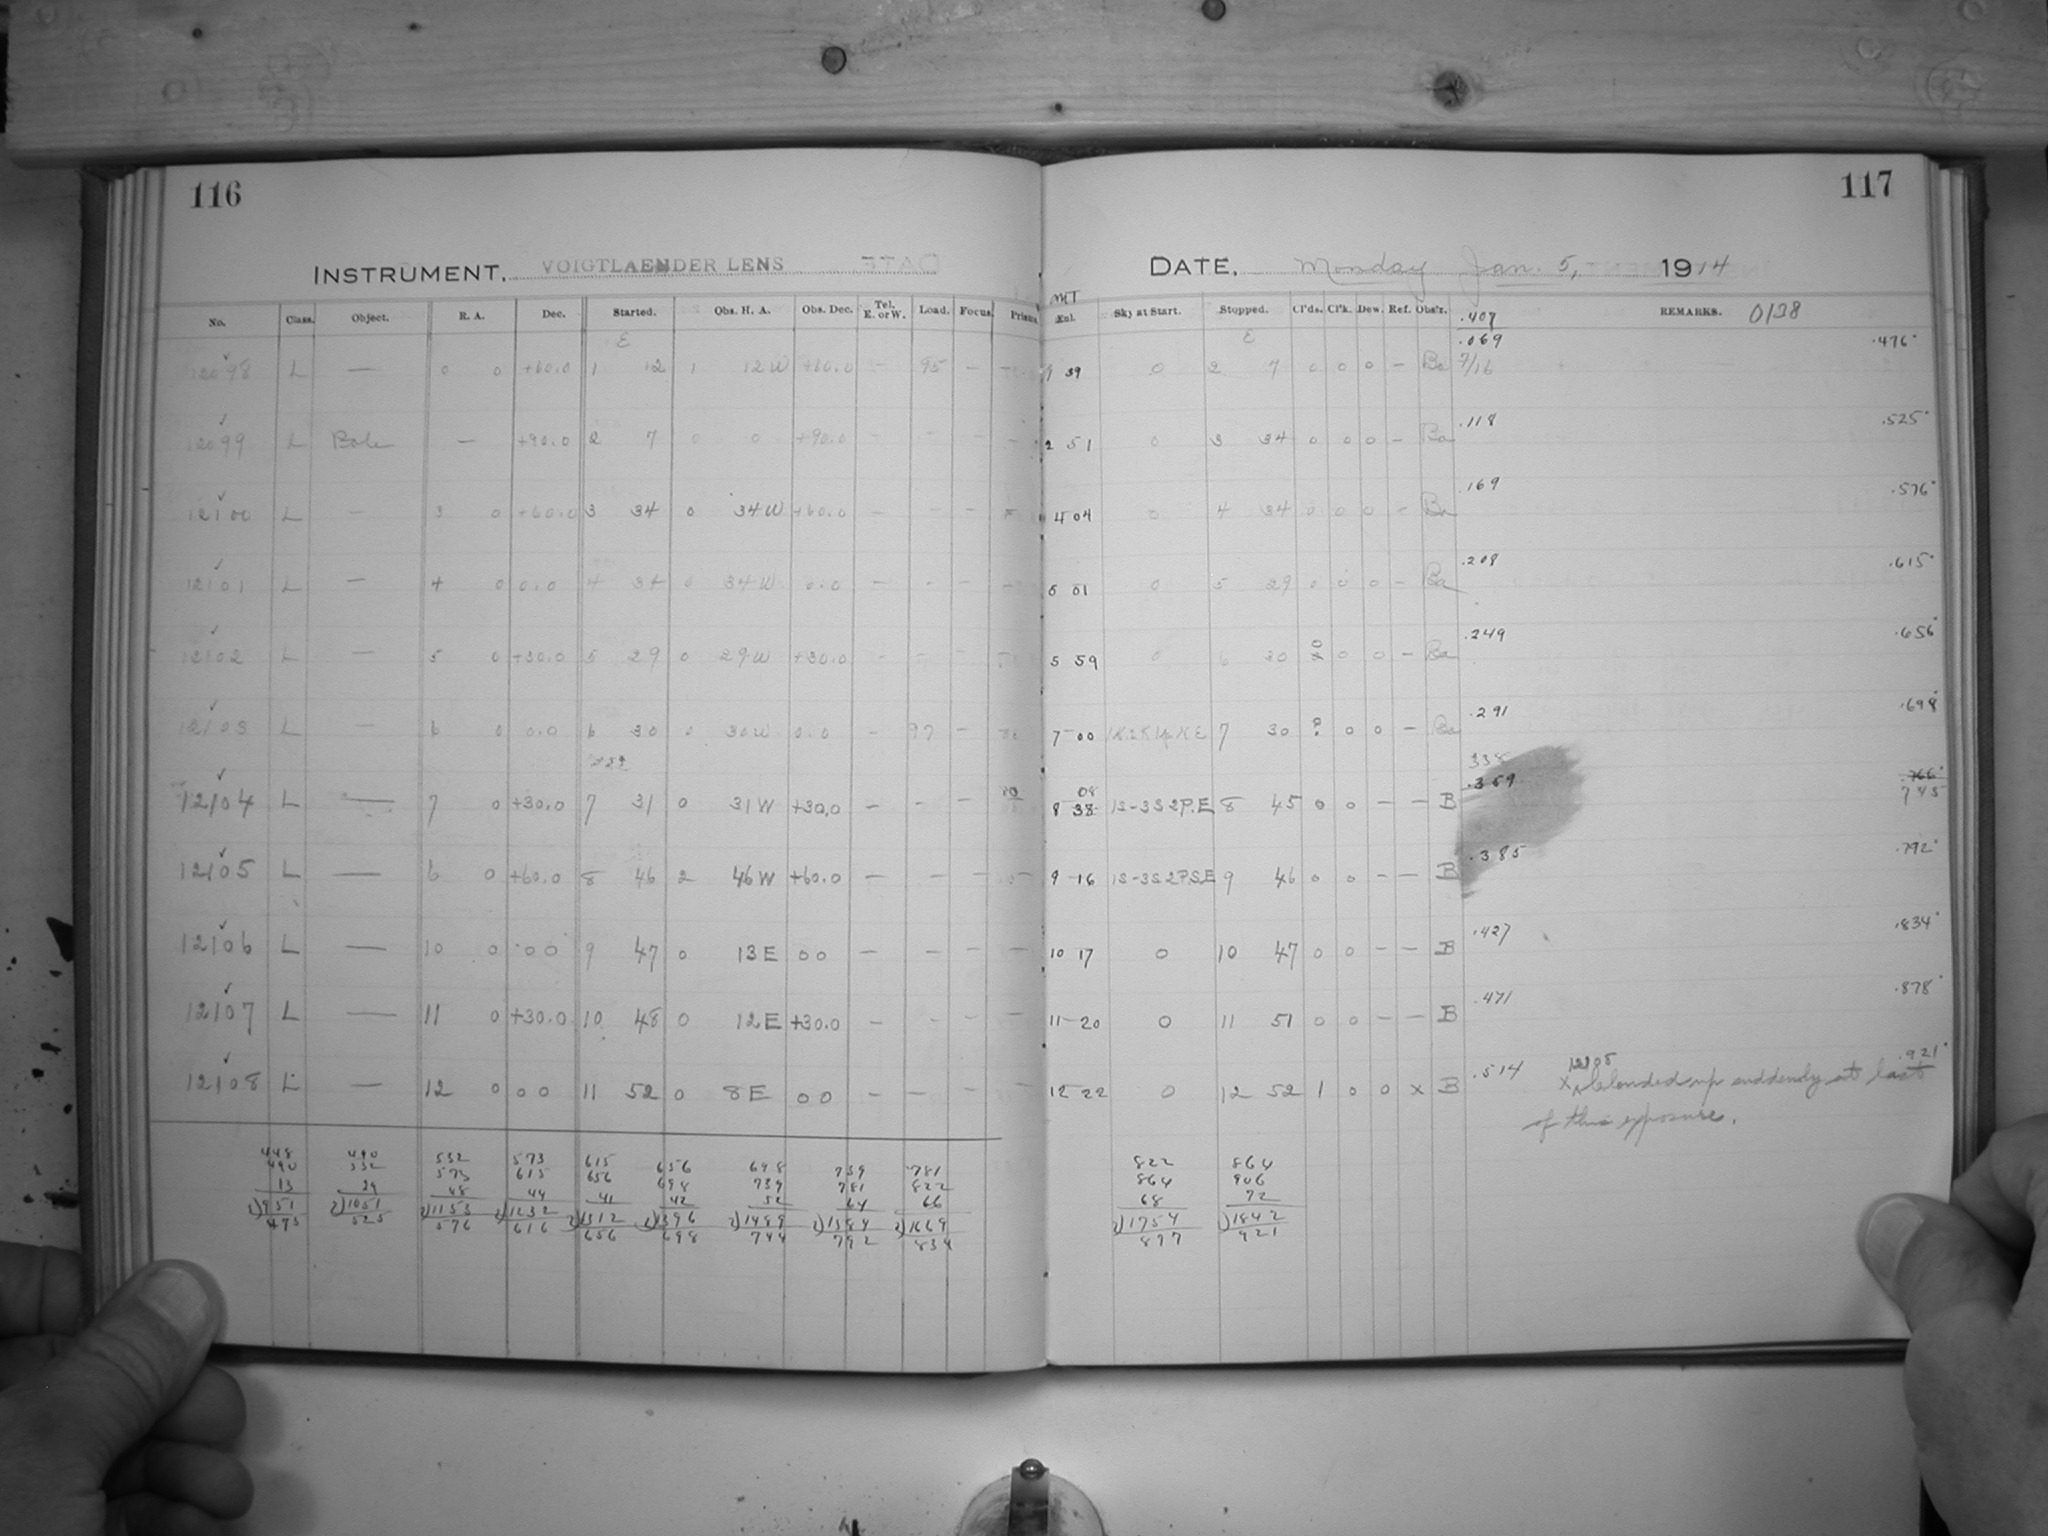 116
117
INSTRUMENT, VOIGTLAENDER LENS
DATE, Monday Jan. 5, 1914
No. Class. Object. R. A. Dec. Started. Obs. H. A. Obs. Dec. Tel. E. or W. Load. Focus. Prism. MT Sky at Start. Stopped. Cl'ds. Cl'k. Dew. Ref. Obs'r. .407 REMARKS. 0138
12098 L — 0 0 +60.0 1 12 1 12W +60.0 — 95 — 1 39 0 2 7 0 0 0 — Ba .069 7/16 .476
12099 L Pole — +90.0 2 7 0 0 +90.0 — — — — 2 51 0 3 34 0 0 0 — Ba .118 .525
12100 L — 3 0 +60.0 3 34 0 34W +60.0 — — — 4 04 0 4 34 0 0 0 — Ba .169 .576
12101 L — 4 0 0.0 4 34 0 34W 0.0 — — — — 5 01 0 5 29 0 0 0 — Ba .208 .615
12102 L — 5 0 +30.0 5 29 0 29W +30.0 — — — 5 59 0 6 30 0 0 — Ba .249 .656
12103 L — 6 0 0.0 6 30 0 30W 0.0 — 97 — 7 00 7 30 ? 0 0 — Ba .291 .698
12104 L — 7 0 +30.0 7 31 0 31W +30.0 — — — 8 38 08 1S-3S2P.E 8 45 0 0 — — B 338 .359 .766 745
12105 L — 6 0 +60.0 8 46 2 46W +60.0 — — — — 9 16 1S-3S2P.S.E 9 46 0 0 — — B .385 .792
12106 L — 10 0 00 9 47 0 13E 00 — — — — 10 17 0 10 47 0 0 — — B .427 .834
12107 L — 11 0 +30.0 10 48 0 12E +30.0 — — — — 11 20 0 11 51 0 0 — — B .471 .878
12108 L — 12 0 00 11 52 0 8E 00 — — — — 12 22 0 12 52 1 0 0 x B .514 .921
12108
x clouded up suddenly at last
of this exposure.
448 490 532 573 615 656 698 739 781 822 864
490 532 573 615 656 698 739 781 822 864 906
13 29 48 44 41 42 52 64 66 68 72
2)951 2)1051 2)1153 2)1232 2)1312 2)1396 2)1489 2)1584 2)1669 2)1754 2)1842
475 525 576 616 656 698 744 792 834 877 921